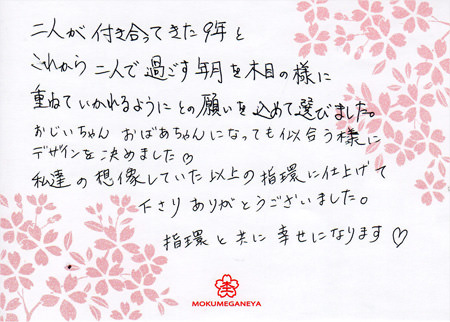 二人が付き合ってきた9年と
これから二人で過ごす年月を木目の様に
重ねていかれるようにとの願いを込めて選びました。
おじいちゃん おばあちゃんになっても似合う様に
デザインを決めました♡
私達の想像していた以上の指環に仕上げて
下さりありがとうございました。
指環と共に幸せになります♡
MOKUMEGANEYA